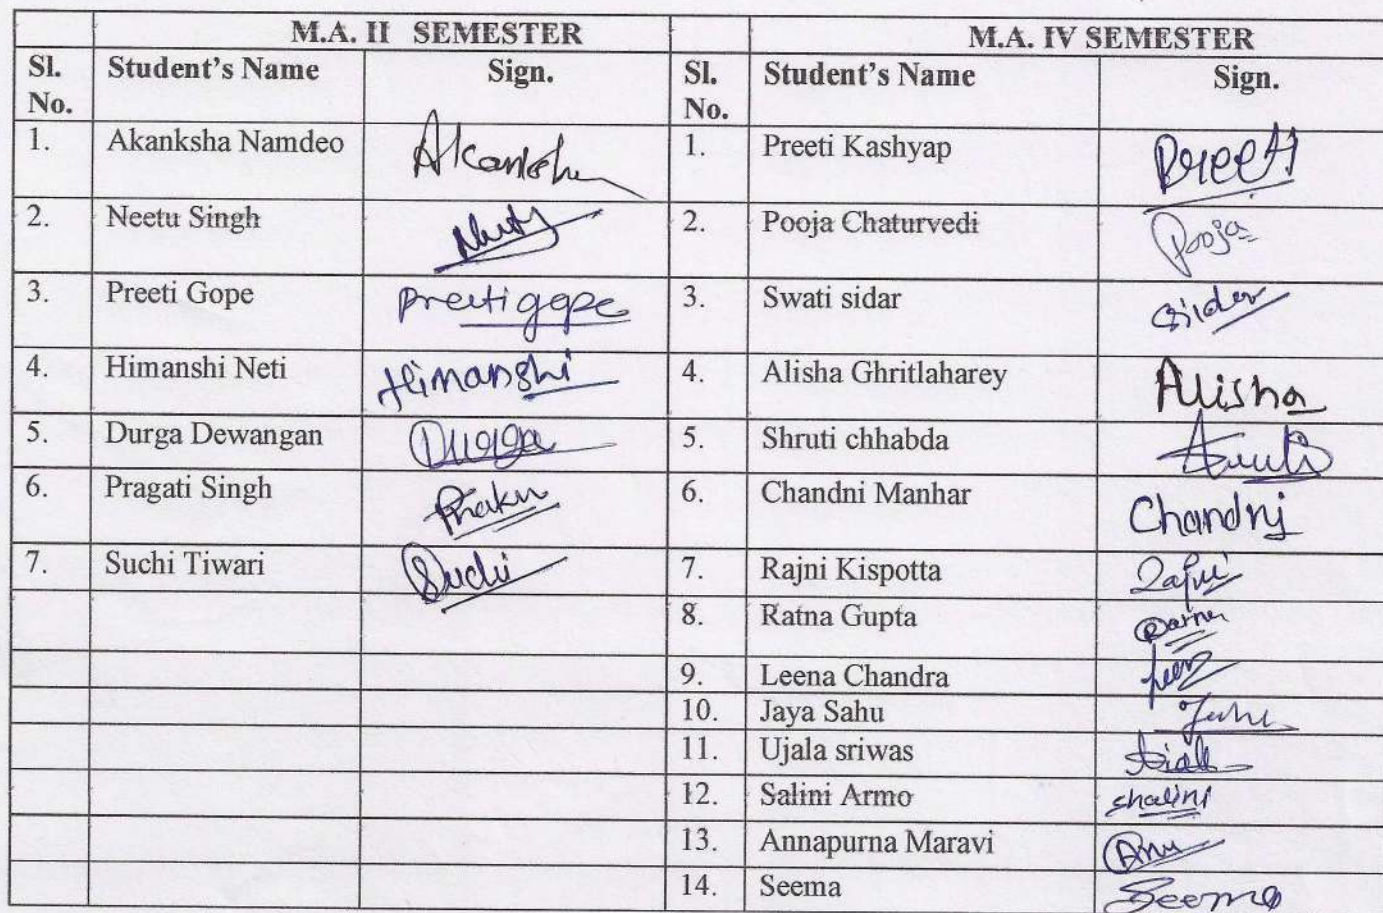 M.A. II SEMESTER M.A. IV SEMESTER
Sl. No. Student's Name Sign. Sl. No. Student's Name Sign.
1. Akanksha Namdeo Akanksha 1. Preeti Kashyap Preeti
2. Neetu Singh 2. Pooja Chaturvedi Pooja
3. Preeti Gope Preeti gope 3. Swati sidar Sidar
4. Himanshi Neti Himanshi 4. Alisha Ghritlaharey Alisha
5. Durga Dewangan Durga 5. Shruti chhabda
6. Pragati Singh 6. Chandni Manhar Chandni
7. Suchi Tiwari Suchi 7. Rajni Kispotta Rajni
8. Ratna Gupta Ratna
9. Leena Chandra
10. Jaya Sahu
11. Ujala sriwas
12. Salini Armo Shalini
13. Annapurna Maravi Anu
14. Seema Seema